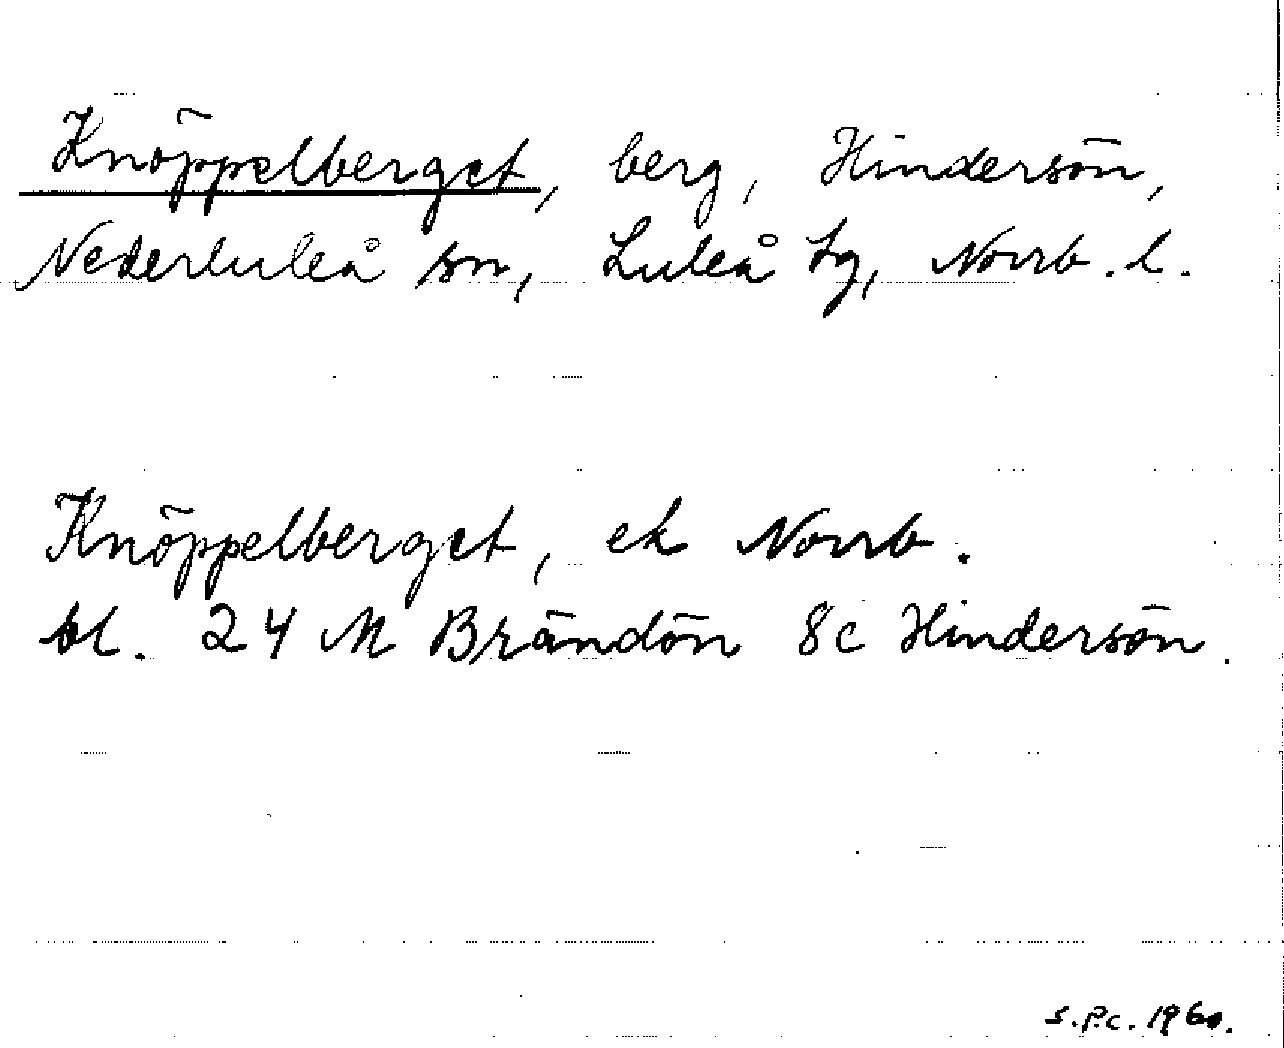 Knöppelberget, berg, Hindersön,
Nederluleå sn, Luleå tg, Norrb. l.
Knöppelberget, ek Norrb.
bl. 24 M Brändön 8c Hindersön.
S.P.C. 1960.